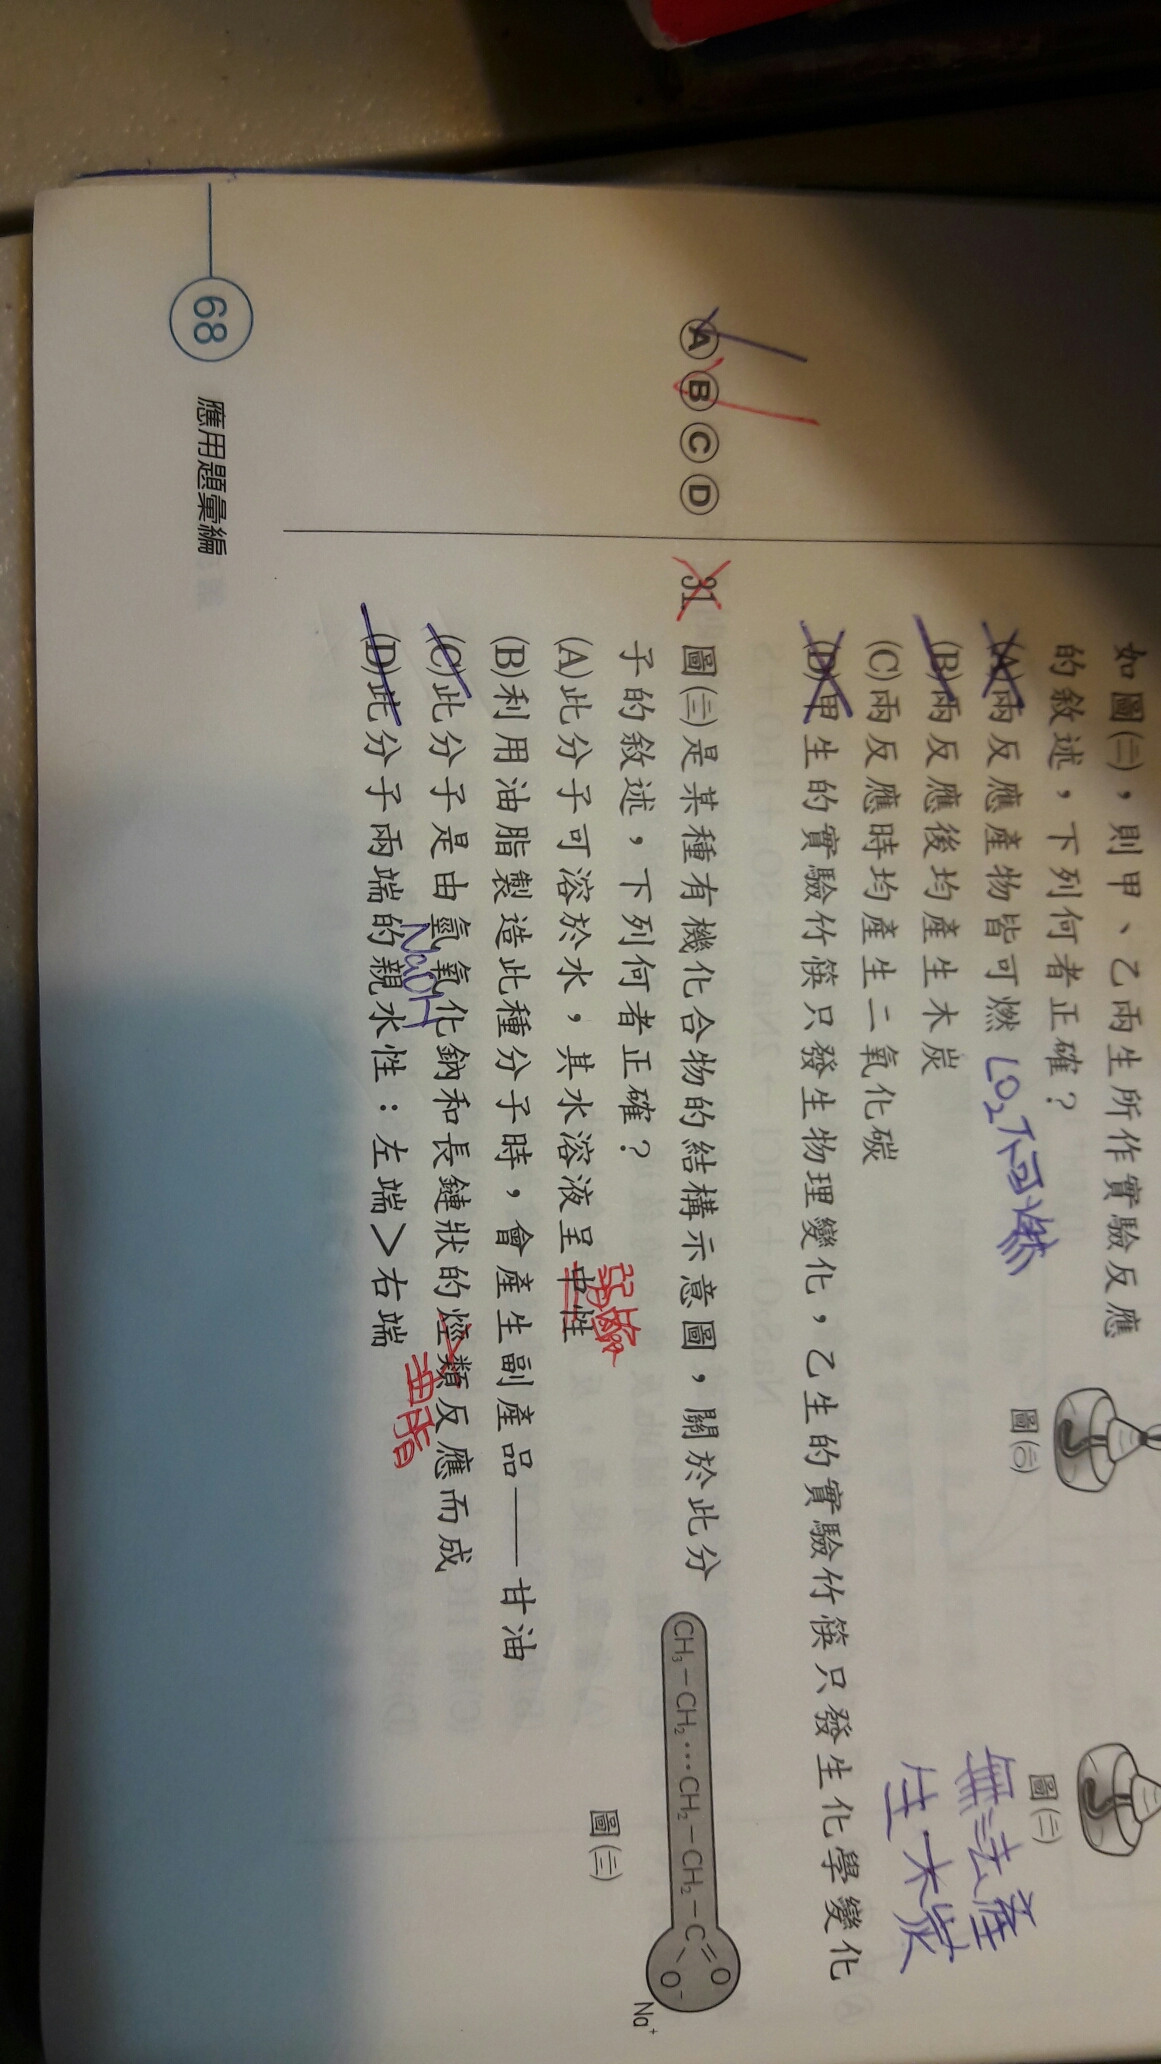 如圖(二)，則甲、乙兩生所作實驗反應
的敘述，下列何者正確？
(A)兩反應產物皆可燃
CO₂不可燃
(B)兩反應後均產生木炭
(C)兩反應時均產生二氧化碳
(D)甲生的實驗竹筷只發生物理變化，乙生的實驗竹筷只發生化學變化
圖(一)
圖(二)
無法產
生木炭
Ⓐ Ⓑ Ⓒ Ⓓ
31. 圖(三)是某種有機化合物的結構示意圖，關於此分
子的敘述，下列何者正確？
(A)此分子可溶於水，其水溶液呈中性
(B)利用油脂製造此種分子時，會產生副產品——甘油
(C)此分子是由氫氧化鈉和長鏈狀的烴類反應而成
NaOH
油脂
(D)此分子兩端的親水性：左端＞右端
CH₃－CH₂…CH₂－CH₂－C
O
O⁻
Na⁺
圖(三)
68 應用題彙編